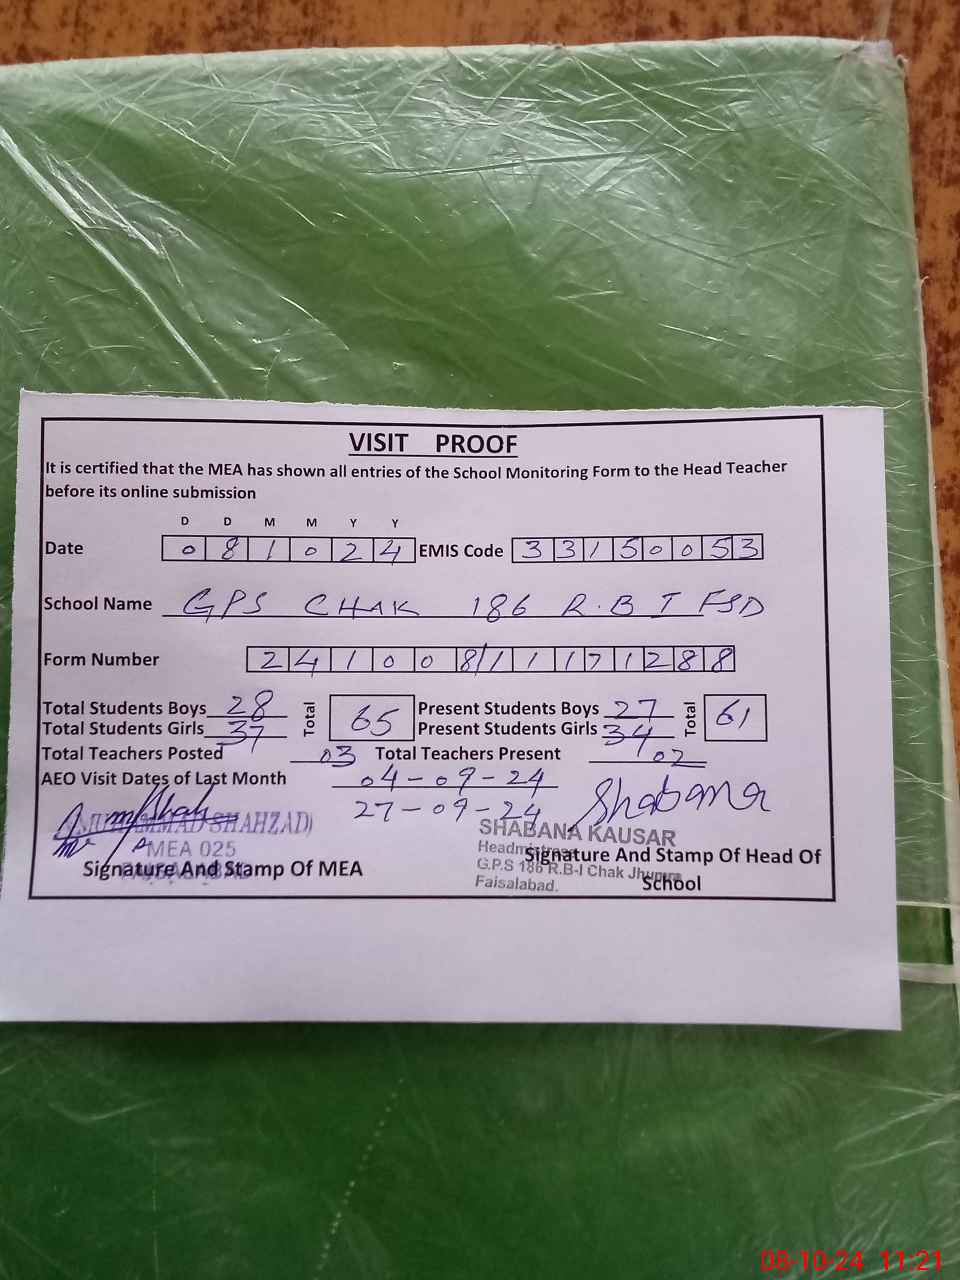 VISIT PROOF
It is certified that the MEA has shown all entries of the School Monitoring Form to the Head Teacher
before its online submission
D D M M Y Y
Date 0 8 1 0 2 4 EMIS Code 3 3 1 5 0 0 5 3
School Name GPS CHAK 186 R.B I FSD
Form Number
Total Students Boys 28 Total 65 Present Students Boys 27 Total 61
Total Students Girls 37 Present Students Girls 34
Total Teachers Posted 03 Total Teachers Present 02
AEO Visit Dates of Last Month 04-09-24
27-09-24 Shabana
(MUHAMMAD SHAHZAD)
MEA 025
FAISALABAD
Signature And Stamp Of MEA
SHABANA KAUSAR
Headmistress
G.P.S 186 R.B-I Chak Jhumra
Faisalabad.
Signature And Stamp Of Head Of
School
08-10-24 11:21